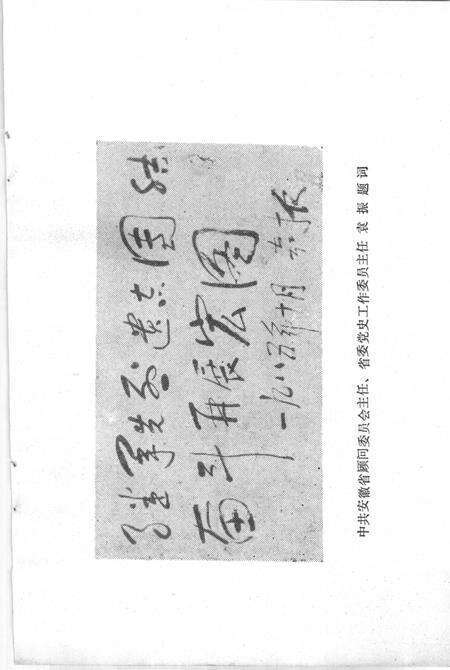 继承先烈遗志团结
奋斗再展宏图
一九八五年十月 袁振
中共安徽省顾问委员会主任、省委党史工作委员主任 袁振 题词